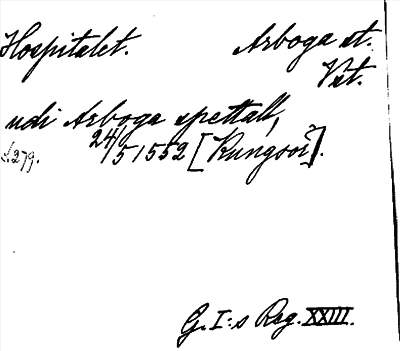 Hospitalet. Arboga st.
Vst.
udi Arboga spettall,
s.279. 24/5 1552 [Kungsör].
G. I:s Reg. XXIII.